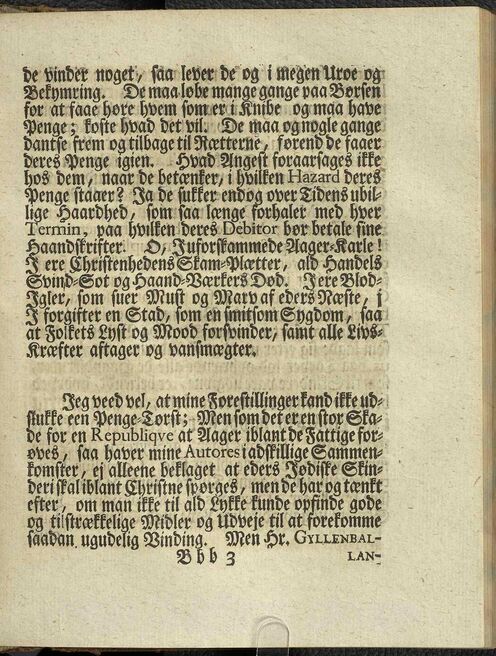 de vinder noget, saa lever de og i megen Uroe og
Bekymring. De maa løbe mange gange paa Børsen
for at faae høre hvem som er i Knibe og maa have
Penge; koste hvad det vil. De maa og nogle gange
dantse frem og tilbage til Rætterne, førend de faaer
deres Penge igien. Hvad Angest foraarsages ikke
hos dem, naar de betænker, i hvilken Hazard deres
Penge staaer? Ja de sukker endog over Tidens ubil-
lige Haardhed, som saa længe forhaler med hver
Termin, paa hvilken deres Debitor bør betale sine
Haandskrifter. O, J uforskammede Aager-Karle!
J ere Christenhedens Skam-Plætter, ald Handels
Svind-Sot og Haand-Værkers Død. J ere Blod-
Jgler, som suer Must og Marv af eders Næste, j
J forgifter en Stad, som en smitsom Sygdom, saa
at Folkets Lyst og Mood forsvinder, samt alle Livs-
Kræfter aftager og vansmægter.
Jeg veed vel, at mine Forestillinger kand ikke ud-
slukke een Penge-Tørst; Men som det er en stor Ska-
de for en Republiqve at Aager iblant de Fattige for-
øves, saa haver mine Autores i adskillige Sammen-
komster, ej alleene beklaget at eders Jødiske Skin-
deri skal iblant Christne spørges, men de har og tænkt
efter, om man ikke til ald Lykke kunde opfinde gode
og tilstrækkelige Midler og Udveje til at forekomme
saadan ugudelig Vinding. Men Hr. GYLLENBAL-
Bbb 3 LAN-